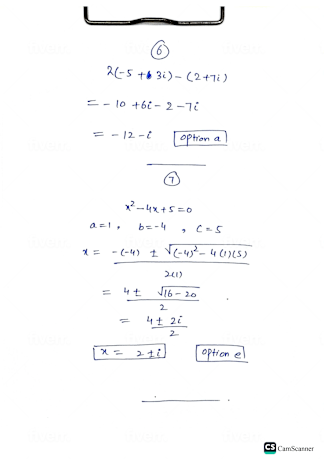 6
2(-5 + 3i) - (2+7i)
= -10 + 6i - 2 - 7i
= -12 - i option a
7
x² - 4x + 5 = 0
a = 1, b = -4, c = 5
x = -(-4) ± √(-4)² - 4(1)(5)
2(1)
= 4 ± √16 - 20
2
= 4 ± 2i
2
x = 2 ± i option e
CS CamScanner